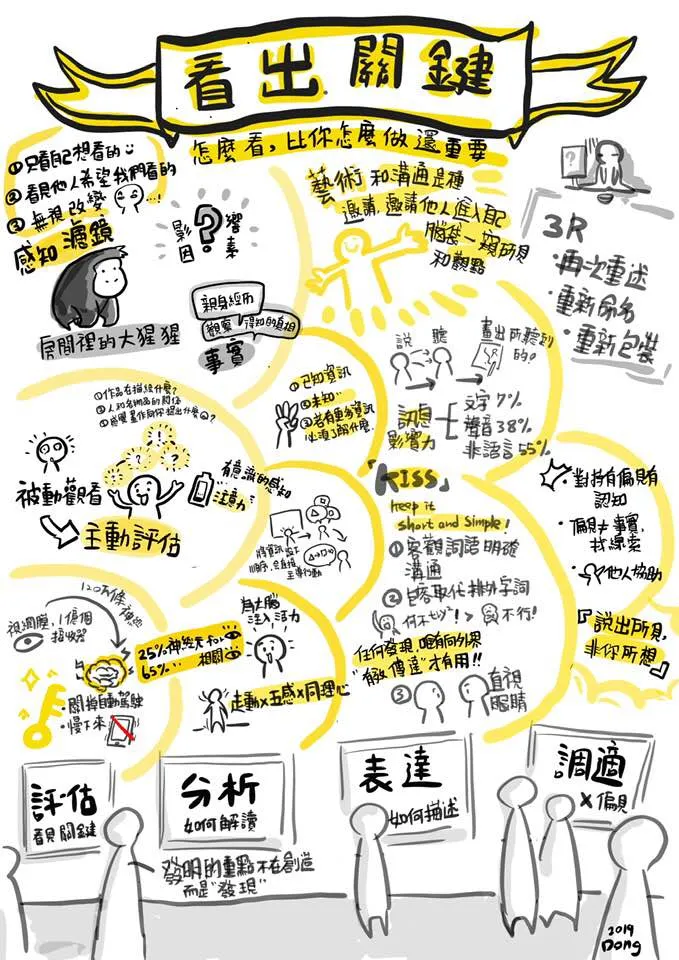 看出關鍵
怎麼看，比你怎麼做還重要
①只看自己想看的
②看見他人希望我們看的
③無視改變
感知濾鏡
影響
因素
?
房間裡的大猩猩
親身經历
觀察 得知的真相
事實
藝術和溝通是種
邀請，邀請他人進入自己
腦袋一窺所見
和觀點
?
3R
·再次重述
·重新命名
·重新包裝
①作品在描繪什麼？
②人和名物品的關係
③感覺畫作向你提出什麼?
被動觀看
主動評估
有意識的感知
注意力?
①已知資訊
②未知…
③若有更多資訊
必須了解什麼
說 聽
畫出所聽到
的!
訊息
影響力
文字7%
聲音38%
非語言55%
「KISS」
keep it
short and simple!
①客觀詞語明確
溝通
②包容取代排斥字詞
何不也以"! > 不行!
任何發現，唯有向外界
"有效傳達"才有用!!
③直視
眼睛
·對持有偏見有
認知
·偏見≠事實，
找線索
·他人協助
『說出所見，
非你所想』
視網膜，1億個
接收器
·關掉自動駕駛
·慢下來
25%神經元和
65%… 相關
為大腦
注入活力
走動×五感×同理心
評估
看見關鍵
分析
如何解讀
表達
如何描述
調適
×偏見
發明的重點不在創造
而是"發現"
2019
Dong